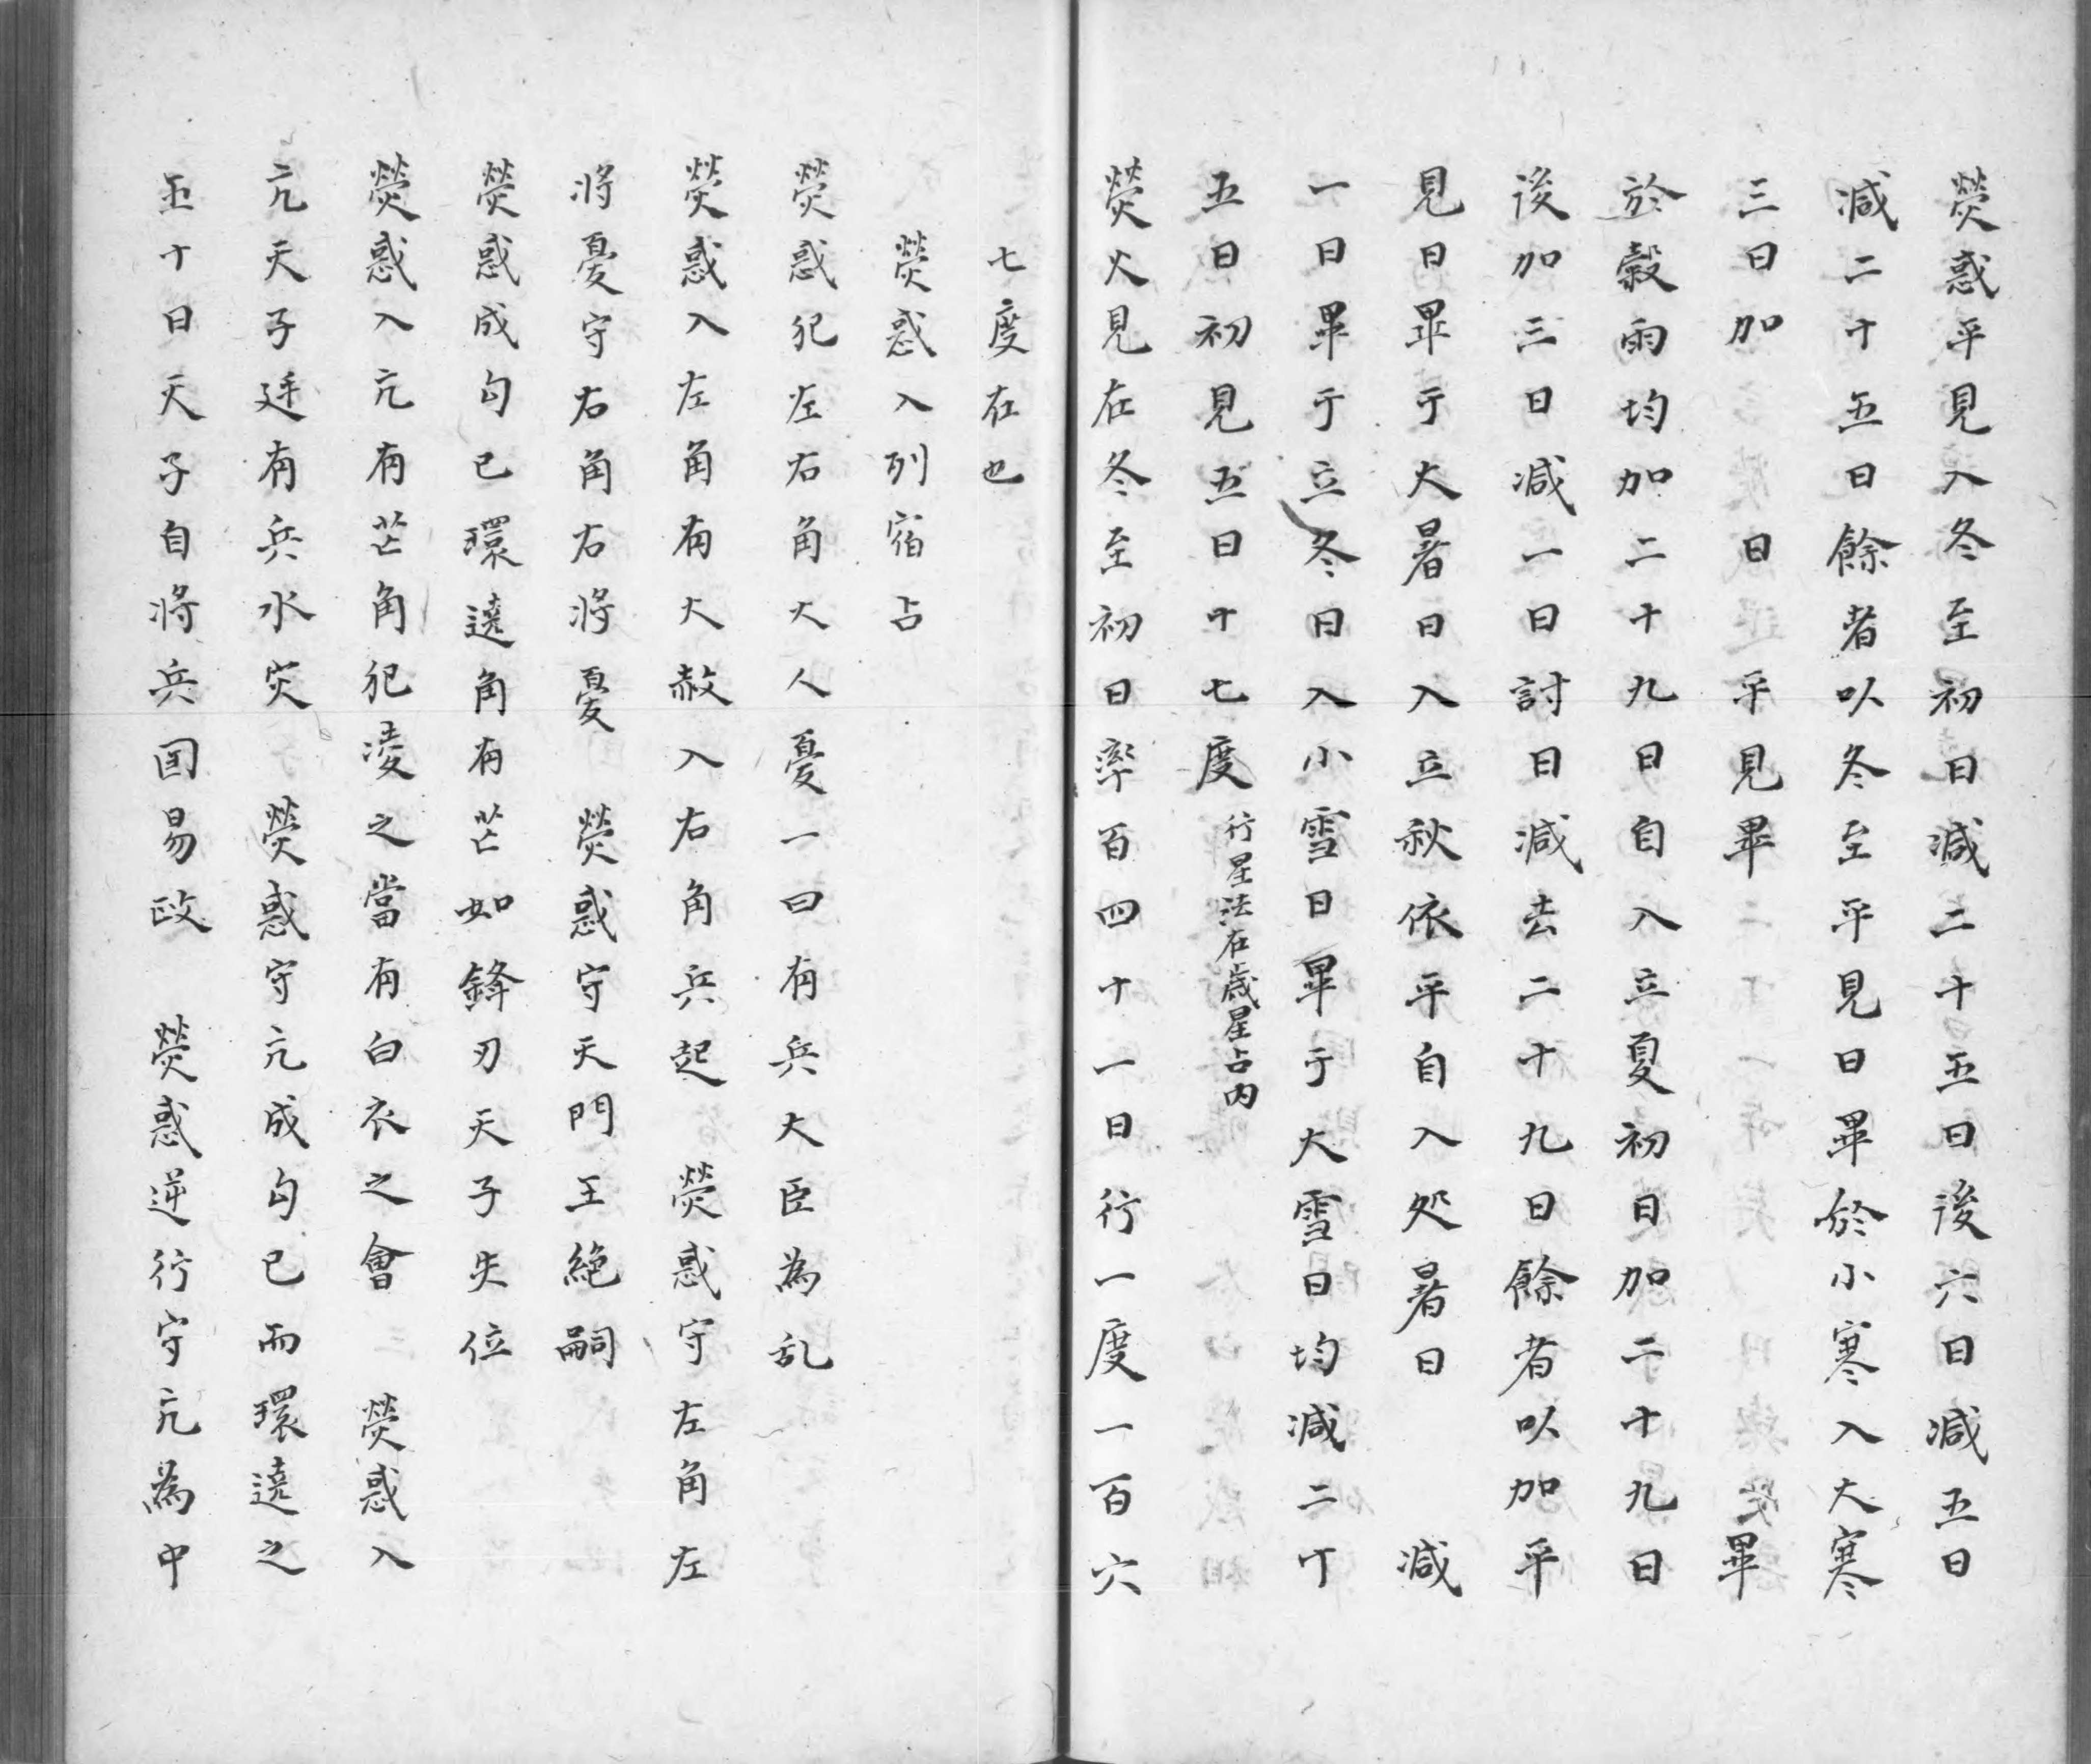 熒惑平見入冬至初日減二十五日後六日減五日
減二十五日餘者以冬至平見日畢於小寒入大寒
三日加 日 平見畢 畢
於穀雨均加二十九日自入立夏初日加二十九日
後加三日減一日討日減去二十九日餘者以加平
見日畢于大暑日入立秋依平自入処暑日 減
一日畢于立冬日入小雪日畢于大雪日均減二丁
五日初見五日十七度行星法在歲星占內
熒火見在冬至初日率百四十一日行一度一百六
七度在也
熒惑入列宿占
熒惑犯左右角大人憂一曰有兵大臣為乱
熒惑入左角有大赦入右角兵起 熒惑守左角左
將憂守右角右將憂 熒惑守天門王絕嗣
熒惑成勾已環遶角有芒如鋒刃天子失位
熒惑入亢有芒角犯凌之當有白衣之會 熒惑入
亢天子廷有兵水灾 熒惑守亢成勾已而環遶之
五十日天子自將兵囯易政 熒惑逆行守亢為中